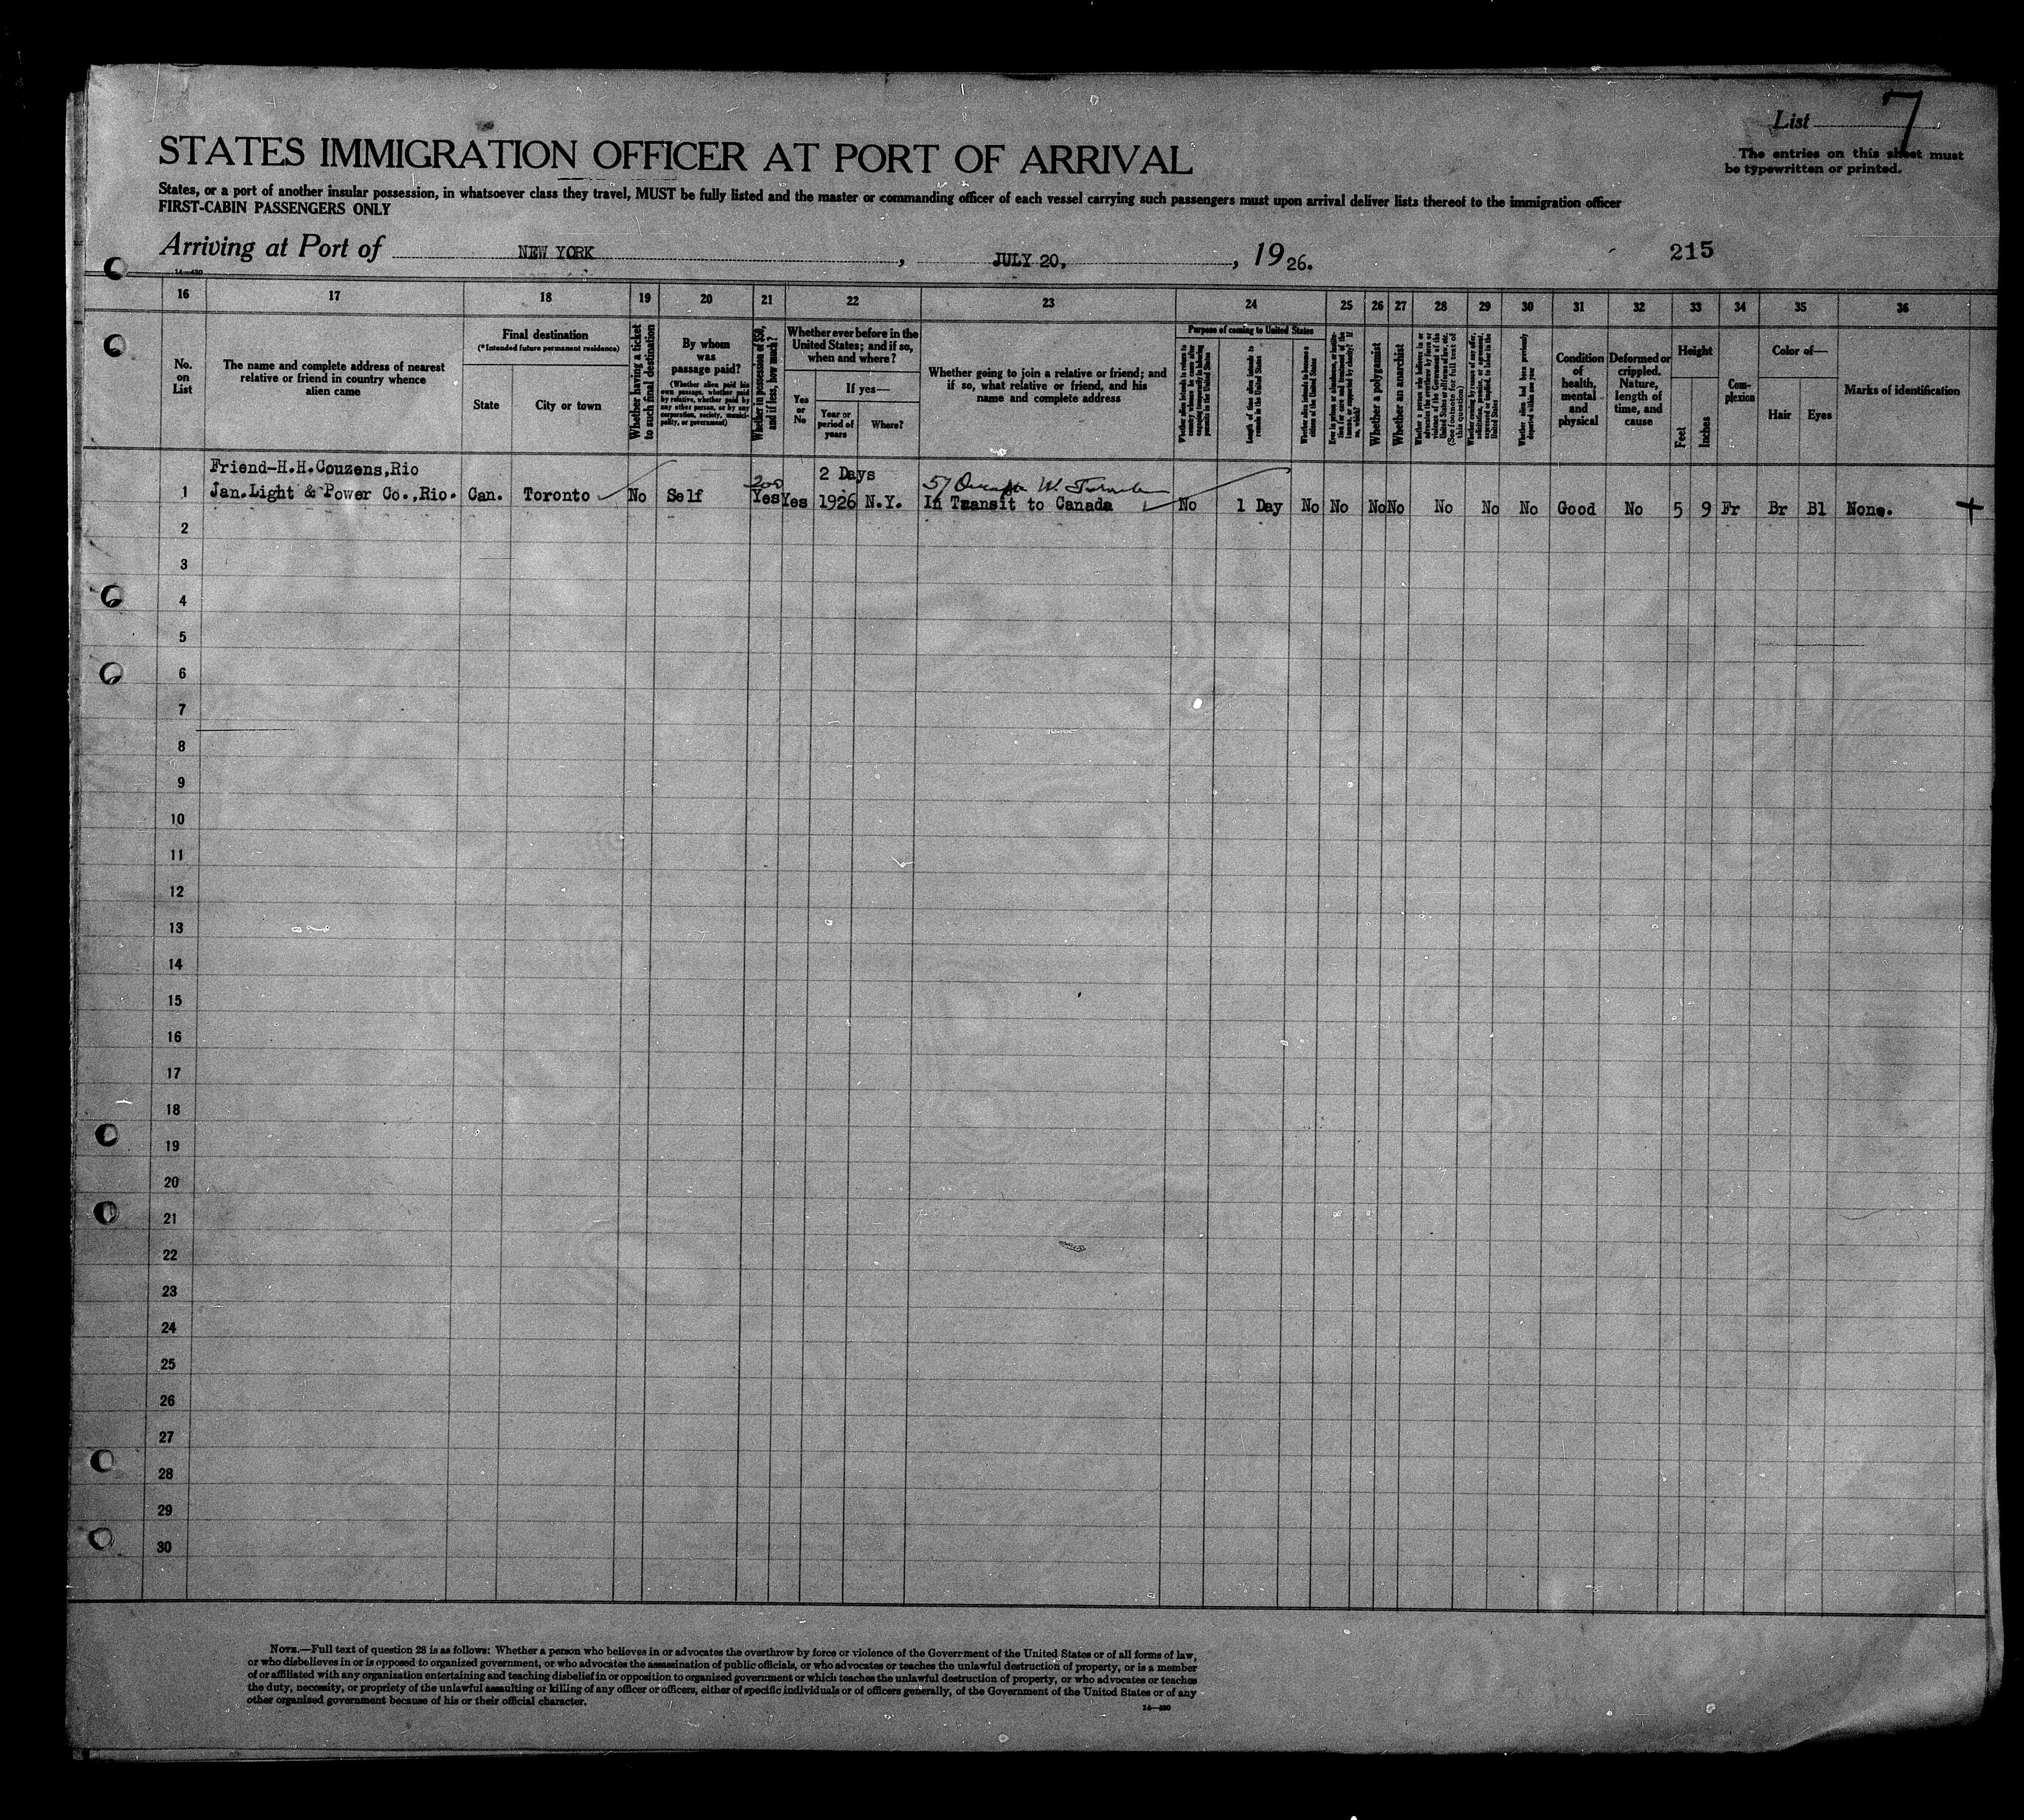 List 7
The entries on this sheet must
be typewritten or printed.
STATES IMMIGRATION OFFICER AT PORT OF ARRIVAL
States, or a port of another insular possession, in whatsoever class they travel, MUST be fully listed and the master or commanding officer of each vessel carrying such passengers must upon arrival deliver lists thereof to the immigration officer
FIRST-CABIN PASSENGERS ONLY
Arriving at Port of NEW YORK, JULY 20, 1926.
215
14—430
16 17 18 19 20 21 22 23 24 25 26 27 28 29 30 31 32 33 34 35 36
No.
on
List
The name and complete address of nearest
relative or friend in country whence
alien came
Final destination
(*Intended future permanent residence)
State
City or town
Whether having a ticket
to such final destination
By whom
was
passage paid?
(Whether alien paid his
own passage, whether paid
by relative, whether paid by
any other person, or by any
corporation, society, munici-
pality, or government)
Whether in possession of $50,
and if less, how much?
Whether ever before in the
United States; and if so,
when and where?
Yes
or
No
If yes—
Year or
period of
years
Where?
Whether going to join a relative or friend; and
if so, what relative or friend, and his
name and complete address
Purpose of coming to United States
Whether alien intends to return to
country whence he came after
engaging temporarily in laboring
pursuits in the United States
Length of time alien intends to
remain in the United States
Whether alien intends to become a
citizen of the United States
Whether a polygamist
Whether an anarchist
(See footnote for full text of
this question)
Whether alien had been previously
deported within one year
Condition
of
health,
mental
and
physical
Deformed or
crippled.
Nature,
length of
time, and
cause
Height
Feet
Inches
Com-
plexion
Color of—
Hair
Eyes
Marks of identification
Friend-H.H.Couzens,Rio
200
2 Days
57 W. Toronto
1 Jan.Light & Power Co.,Rio. Can. Toronto No Self Yes Yes 1926 N.Y. In Transit to Canada No 1 Day No No No No No No No Good No 5 9 Fr Br Bl None. +
2
3
4
5
6
7
8
9
10
11
12
13
14
15
16
17
18
19
20
21
22
23
24
25
26
27
28
29
30
NOTE.—Full text of question 28 is as follows: Whether a person who believes in or advocates the overthrow by force or violence of the Government of the United States or of all forms of law,
or who disbelieves in or is opposed to organized government, or who advocates the assassination of public officials, or who advocates or teaches the unlawful destruction of property, or is a member
of or affiliated with any organization entertaining and teaching disbelief in or opposition to organized government or which teaches the unlawful destruction of property, or who advocates or teaches
the duty, necessity, or propriety of the unlawful assaulting or killing of any officer or officers, either of specific individuals or of officers generally, of the Government of the United States or of any
other organized government because of his or their official character.
14—430